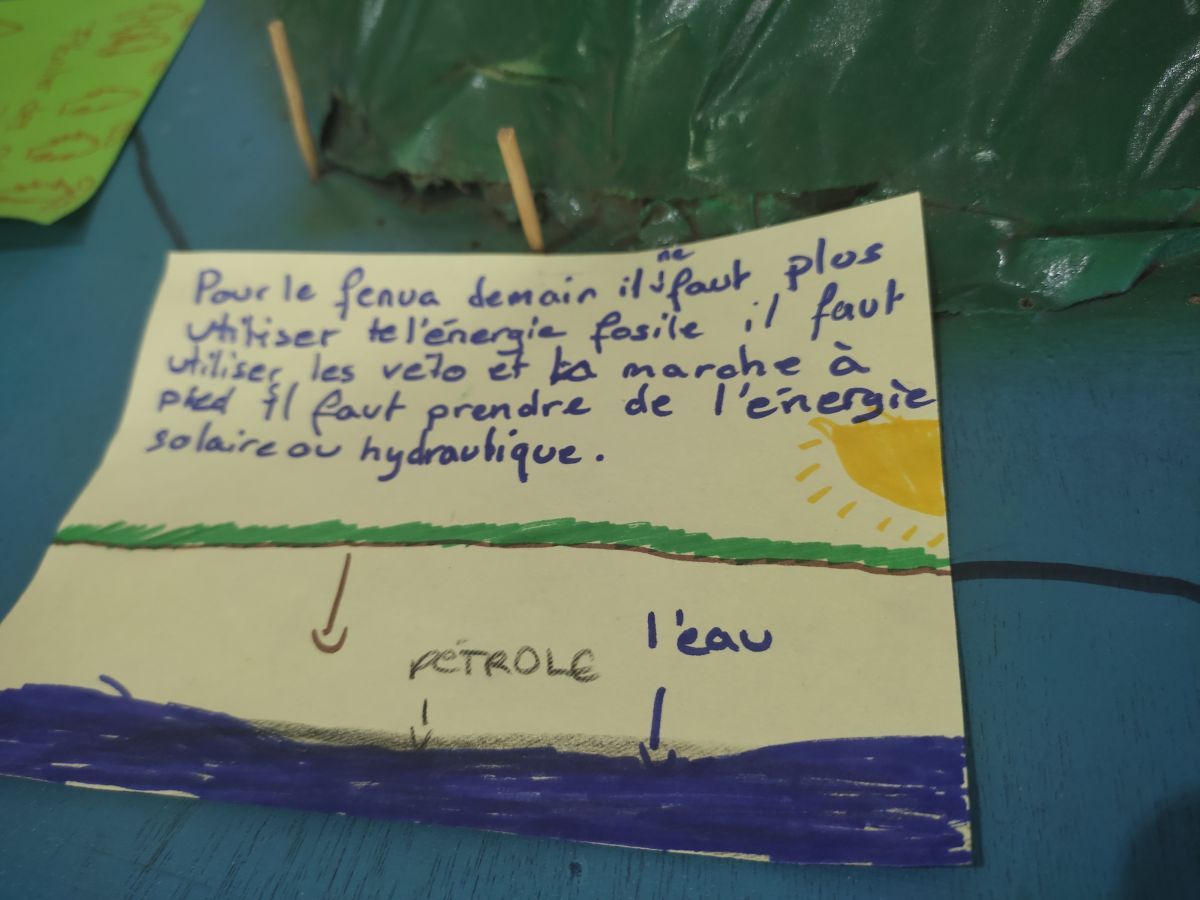 Pour le fenua demain il ne faut plus
utiliser l'énergie fosile il faut
utiliser les velo et la marche à
pied Il faut prendre de l'énergie
solaire ou hydraulique.
PÉTROLE
l'eau